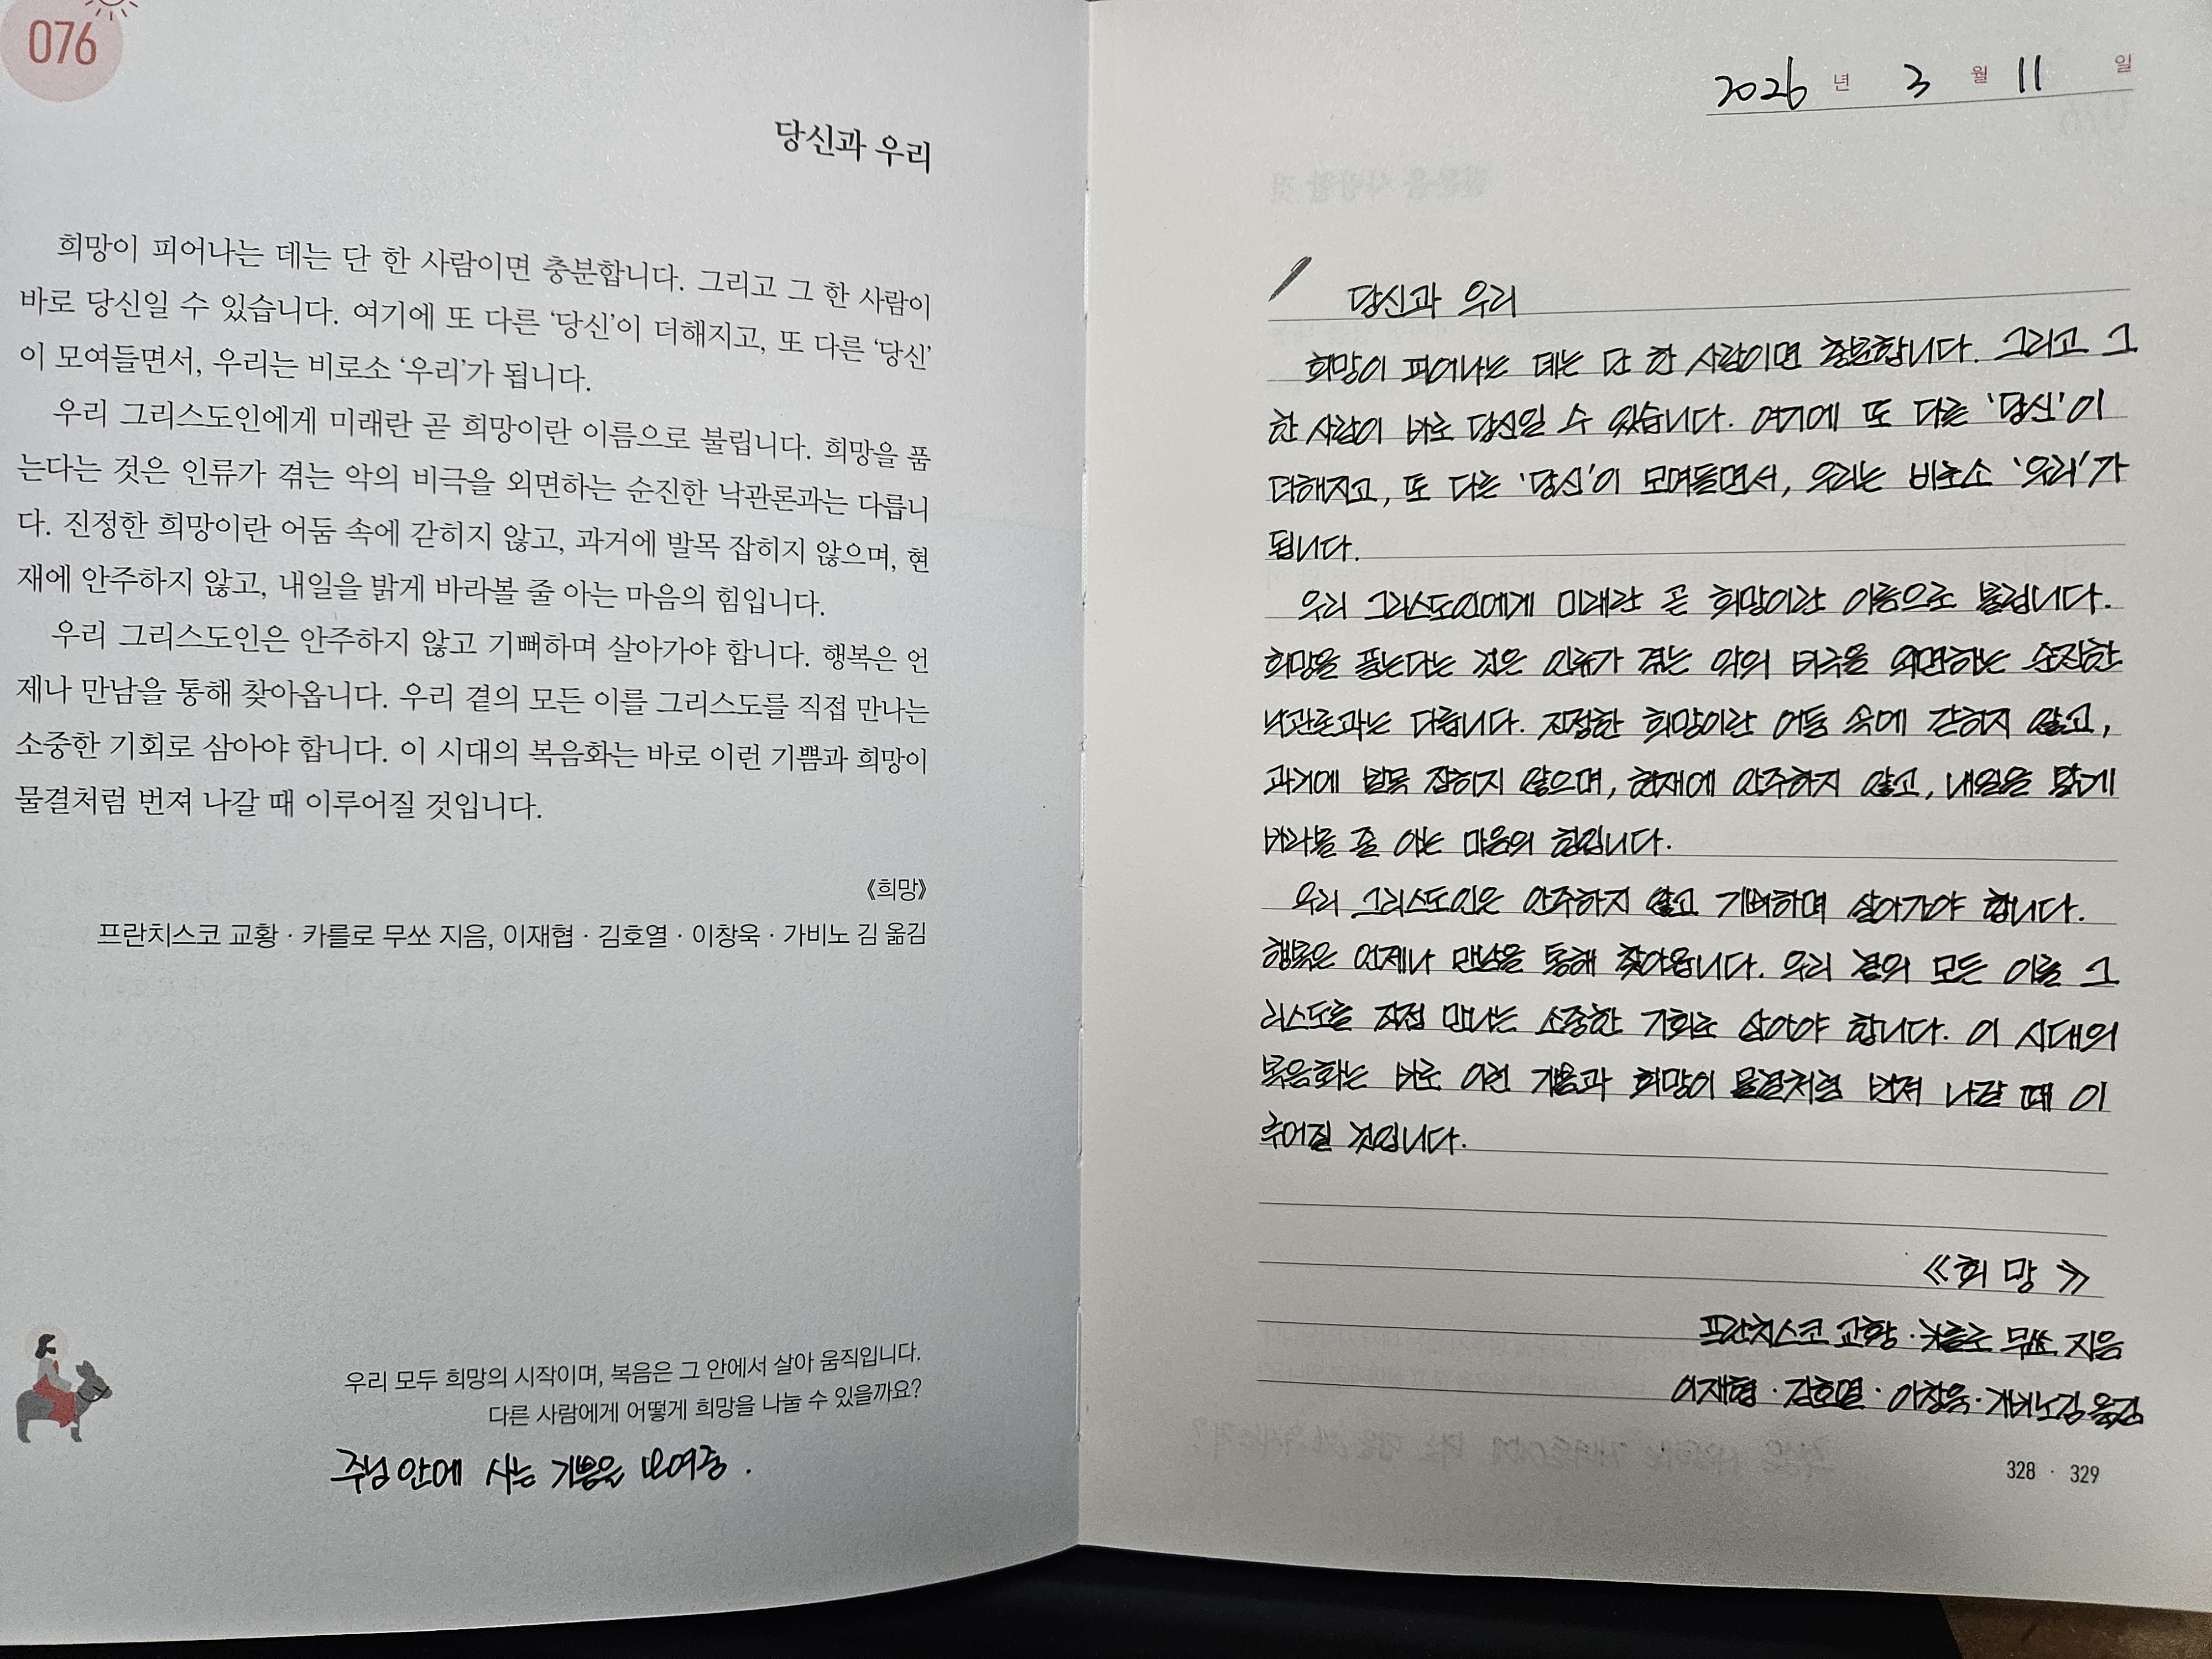 076
당신과 우리
희망이 피어나는 데는 단 한 사람이면 충분합니다. 그리고 그 한 사람이
바로 당신일 수 있습니다. 여기에 또 다른 ‘당신’이 더해지고, 또 다른 ‘당신’
이 모여들면서, 우리는 비로소 ‘우리’가 됩니다.
우리 그리스도인에게 미래란 곧 희망이란 이름으로 불립니다. 희망을 품
는다는 것은 인류가 겪는 악의 비극을 외면하는 순진한 낙관론과는 다릅니
다. 진정한 희망이란 어둠 속에 갇히지 않고, 과거에 발목 잡히지 않으며, 현
재에 안주하지 않고, 내일을 밝게 바라볼 줄 아는 마음의 힘입니다.
우리 그리스도인은 안주하지 않고 기뻐하며 살아가야 합니다. 행복은 언
제나 만남을 통해 찾아옵니다. 우리 곁의 모든 이를 그리스도를 직접 만나는
소중한 기회로 삼아야 합니다. 이 시대의 복음화는 바로 이런 기쁨과 희망이
물결처럼 번져 나갈 때 이루어질 것입니다.
《희망》
프란치스코 교황 · 카를로 무쏘 지음, 이재협 · 김호열 · 이창욱 · 가비노 김 옮김
우리 모두 희망의 시작이며, 복음은 그 안에서 살아 움직입니다.
다른 사람에게 어떻게 희망을 나눌 수 있을까요?
주님 안에 사는 기쁨을 보여줌.
2026 년 3 월 11 일
당신과 우리
희망이 피어나는 데는 단 한 사람이면 충분합니다. 그리고 그
한 사람이 바로 당신일 수 있습니다. 여기에 또 다른 ‘당신’이
더해지고, 또 다른 ‘당신’이 모여들면서, 우리는 비로소 ‘우리’가
됩니다.
우리 그리스도인에게 미래란 곧 희망이란 이름으로 불립니다.
희망을 품는다는 것은 인류가 겪는 악의 비극을 외면하는 순진한
낙관론과는 다릅니다. 진정한 희망이란 어둠 속에 갇히지 않고,
과거에 발목 잡히지 않으며, 현재에 안주하지 않고, 내일을 밝게
바라볼 줄 아는 마음의 힘입니다.
우리 그리스도인은 안주하지 않고 기뻐하며 살아가야 합니다.
행복은 언제나 만남을 통해 찾아옵니다. 우리 곁의 모든 이를 그
리스도를 직접 만나는 소중한 기회로 삼아야 합니다. 이 시대의
복음화는 바로 이런 기쁨과 희망이 물결처럼 번져 나갈 때 이
루어질 것입니다.
《희망》
프란치스코 교황 · 카를로 무쏘 지음
이재협 · 김호열 · 이창욱 · 가비노 김 옮김
328 · 329